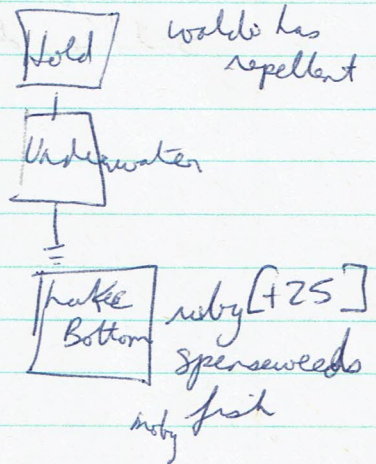 Hold
waldo has
repellent
Underwater
Lake
Bottom
ruby [+25]
spenseweeds
fish
moby